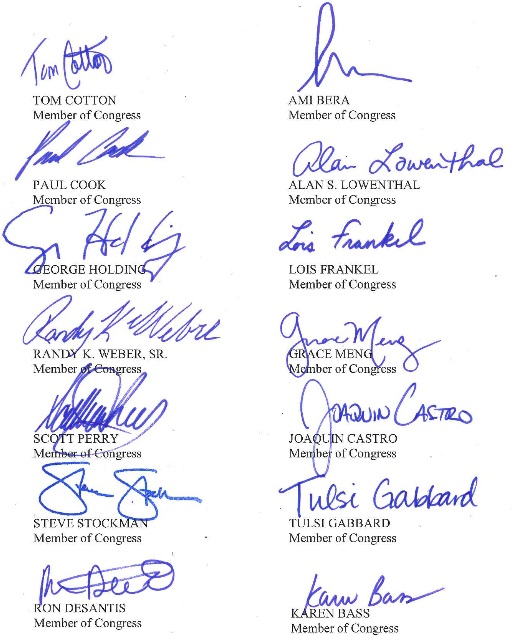 Tom Cotton
TOM COTTON
Member of Congress
Paul Cook
PAUL COOK
Member of Congress
GEORGE HOLDING
Member of Congress
Randy K Weber
RANDY K. WEBER, SR.
Member of Congress
SCOTT PERRY
Member of Congress
Steve Stockman
STEVE STOCKMAN
Member of Congress
RON DESANTIS
Member of Congress
AMI BERA
Member of Congress
Alan Lowenthal
ALAN S. LOWENTHAL
Member of Congress
Lois Frankel
LOIS FRANKEL
Member of Congress
Grace Meng
GRACE MENG
Member of Congress
JOAQUIN CASTRO
JOAQUIN CASTRO
Member of Congress
Tulsi Gabbard
TULSI GABBARD
Member of Congress
Karen Bass
KAREN BASS
Member of Congress